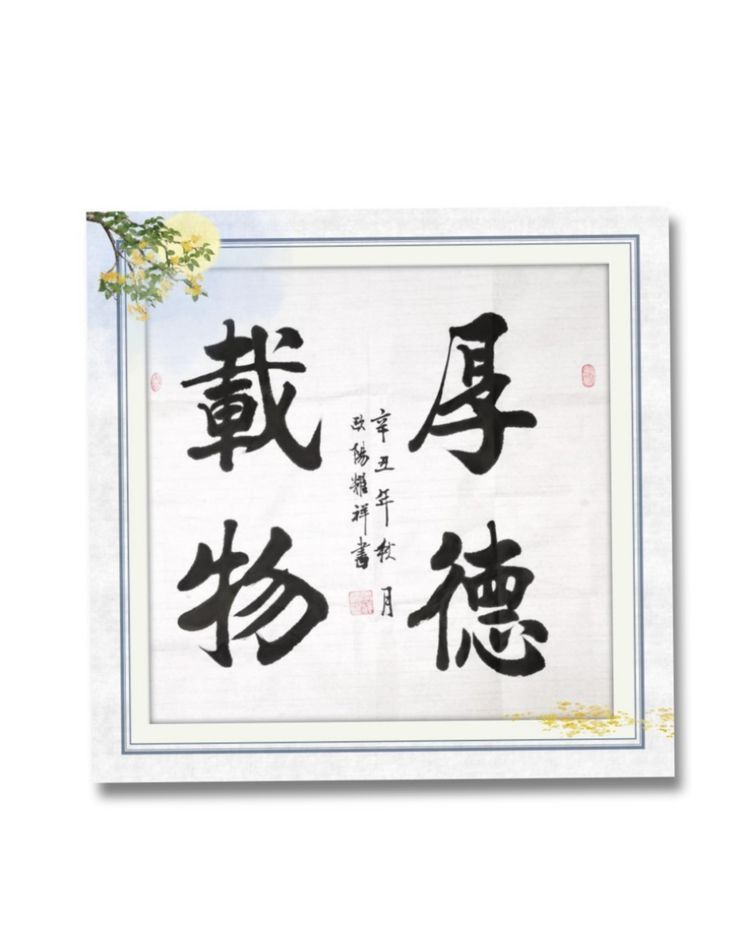 厚德
載物
辛丑年秋月
欧陽耀祥書